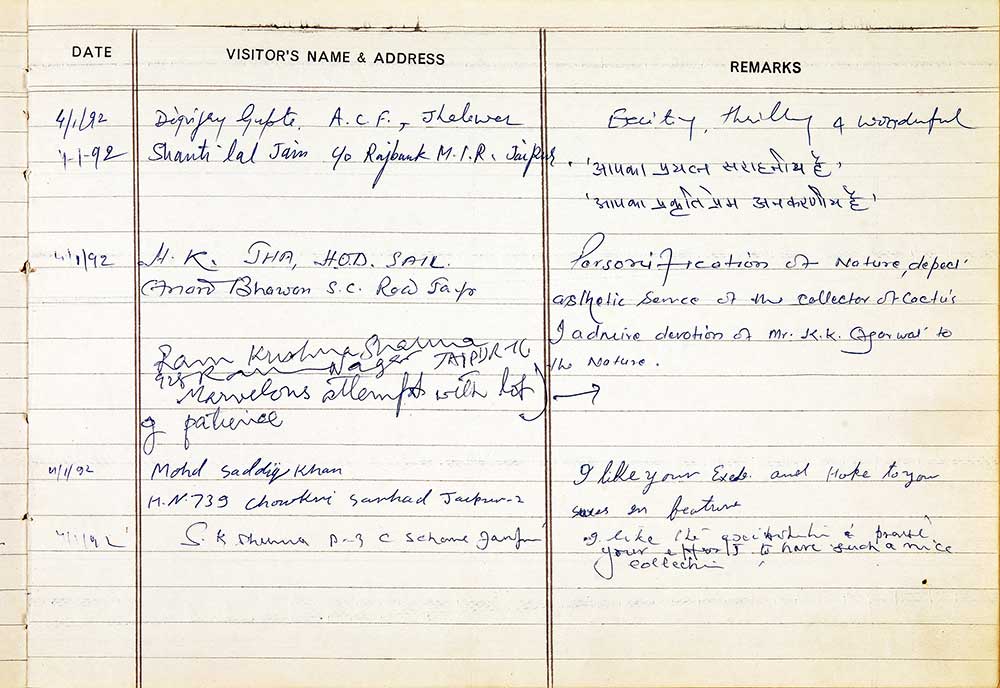 DATE VISITOR'S NAME & ADDRESS REMARKS
4/1/92 Digvijay Gupta, A.C.F., Jhalawar Exciting, thrilling & wonderful
4-1-92 Shanti lal Jain c/o Rajbank M.I.R. Jaipur
'आपका प्रयत्न सराहनीय है'
'आपका प्रकृति प्रेम अनकरणीय है'
4/1/92 M.K. JHA, H.O.D. SAIL.
Anand Bhawan S.C. Road Jaipr
Personification of Nature, depect
asthetic sence of the collector of Coctus
I admire devotion of Mr. K.K. Agarwal to
the Nature.
Ram Krishna Sharma
925 Ram Nagar JAIPUR
Marvelous attempt with lot
of patience
4/1/92 Mohd Saddiq Khan
H.N. 739 Chowkri Jaipur-2
I like your Exeb. and Hope to you
in feature
4/1/92 S.K Sharma D-3 C Scheme Jaipur
I like the &
your efforts to have such a nice
collection